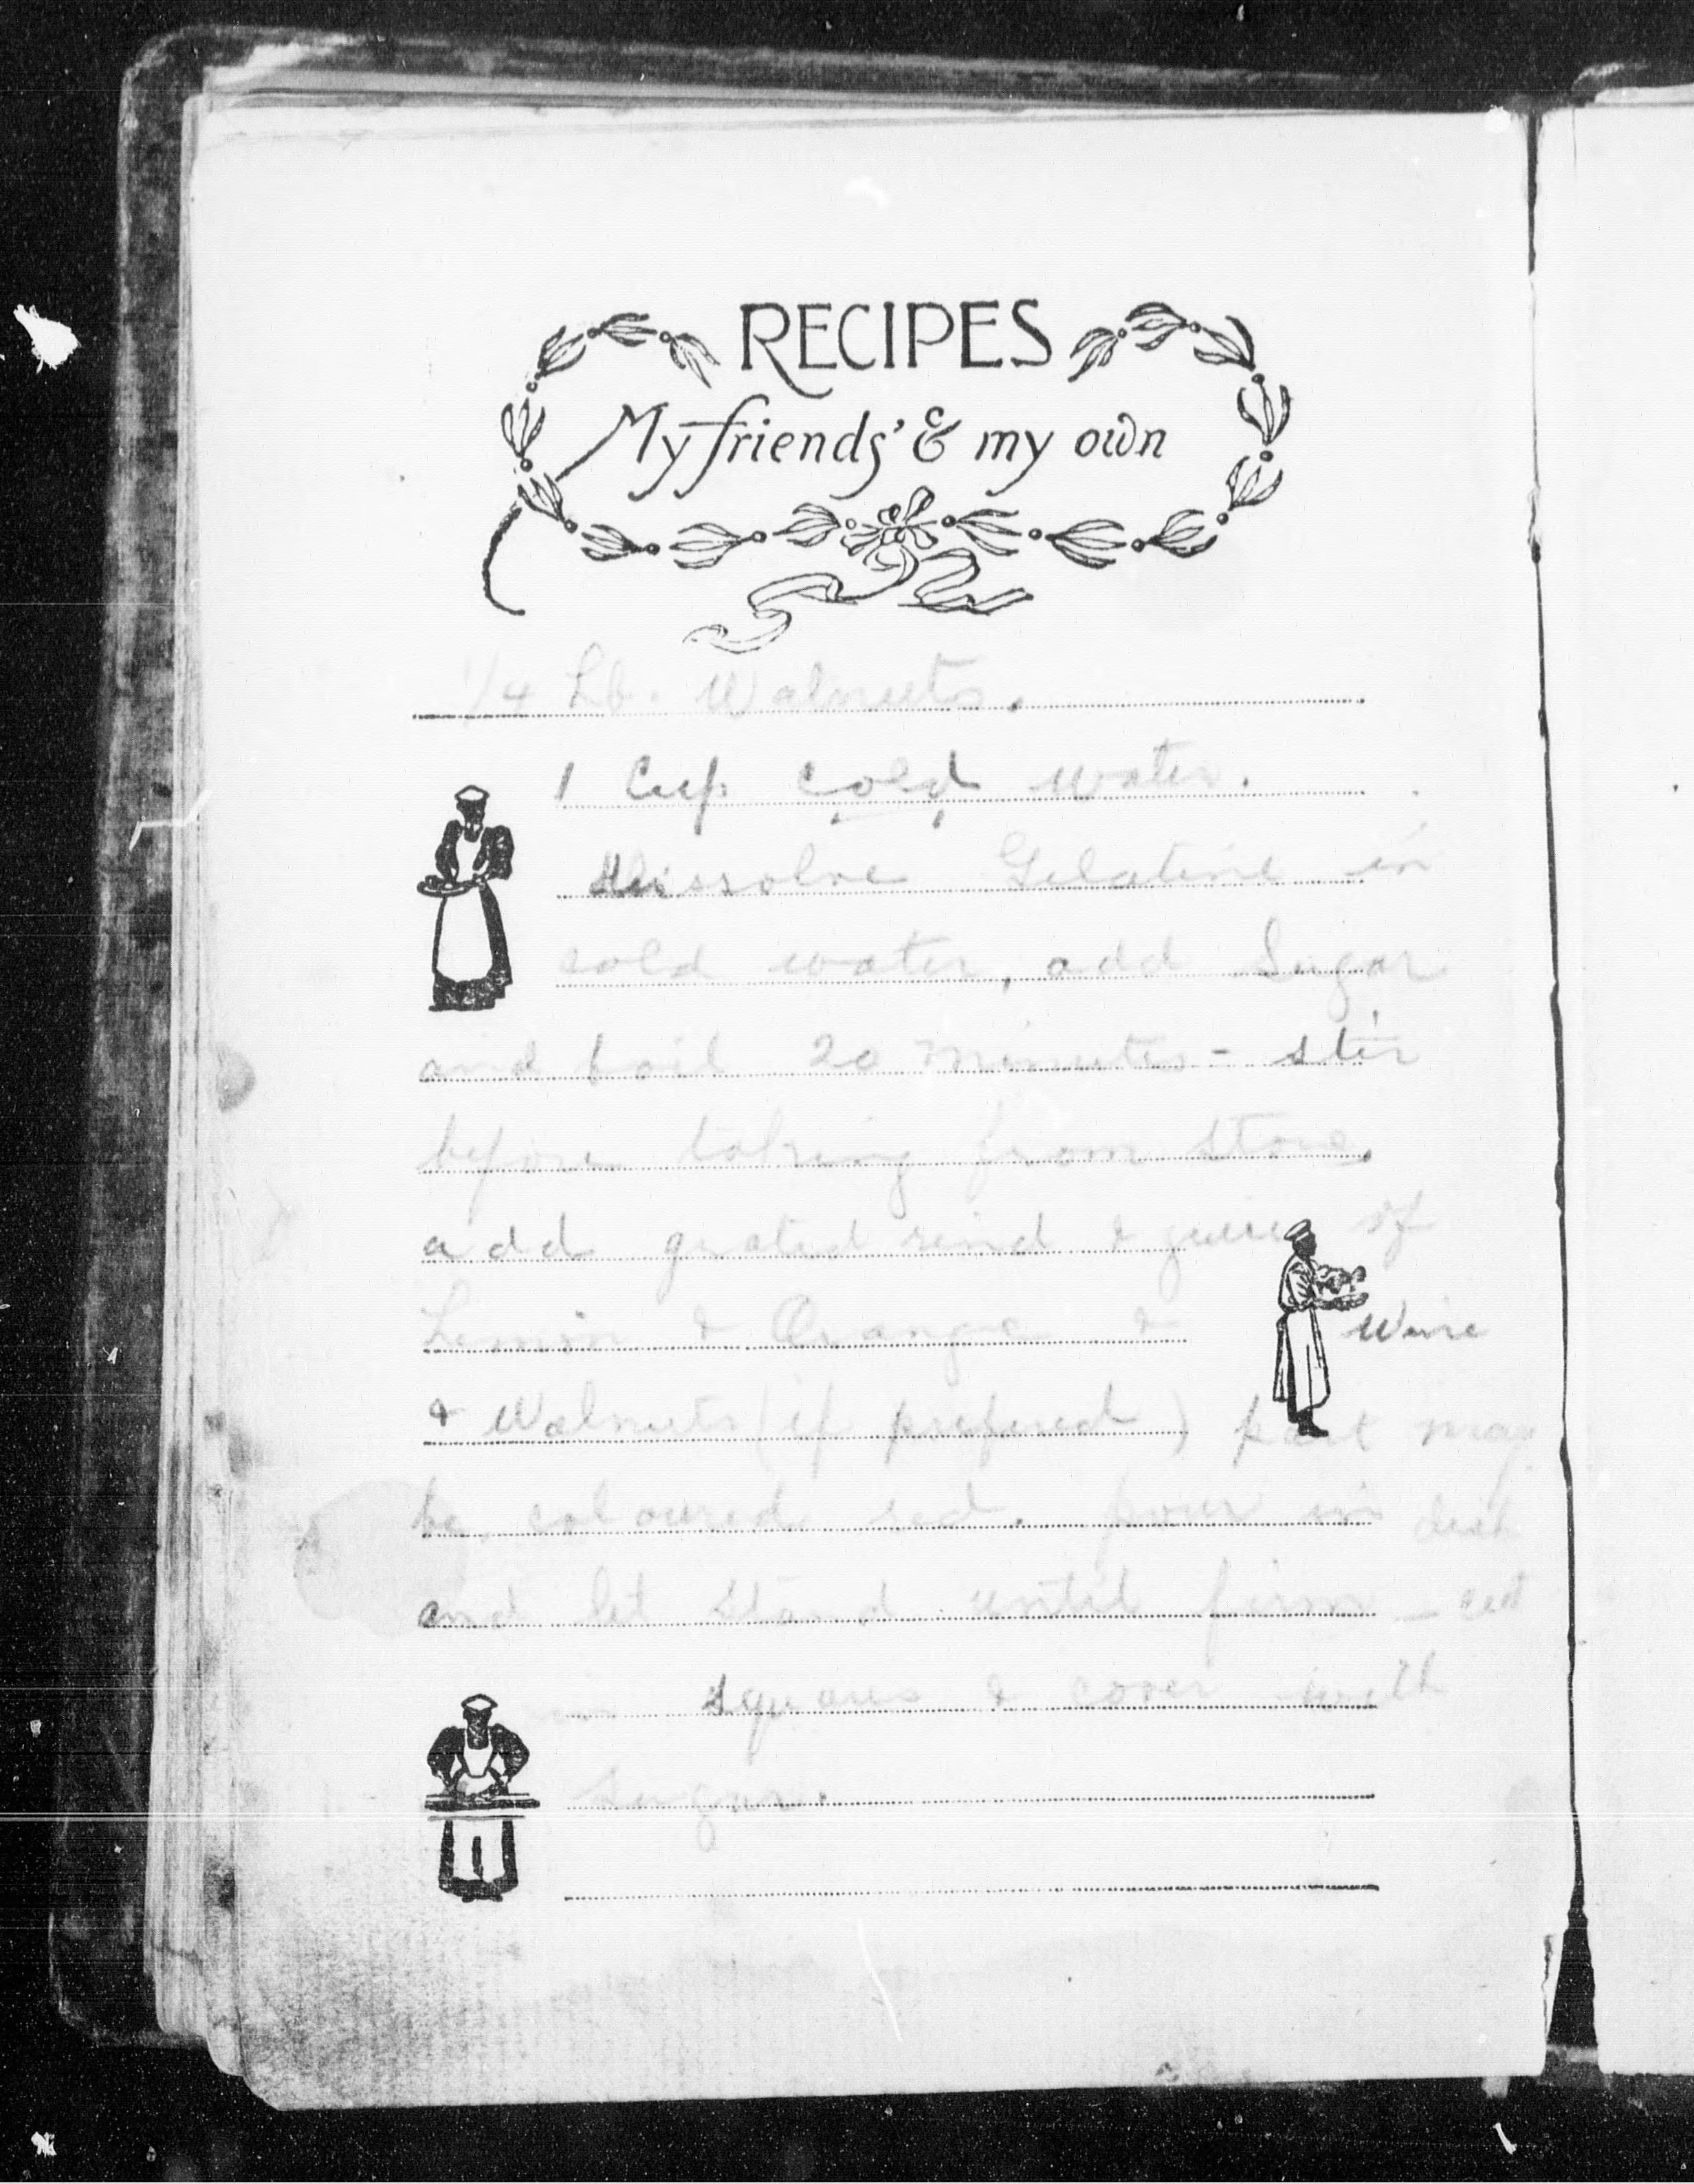 RECIPES
My friends' & my own
1/4 Lb. Walnuts.
1 Cup cold water.
dissolve Gelatine in
cold water, add Sugar
and boil 20 minutes - stir
before taking from stove,
add grated rind & juice of
Lemon & Orange & Wine
& Walnuts (if prefered) part may
be coloured red. pour in dish
and let stand until firm - cut
in squares & cover with
sugar.